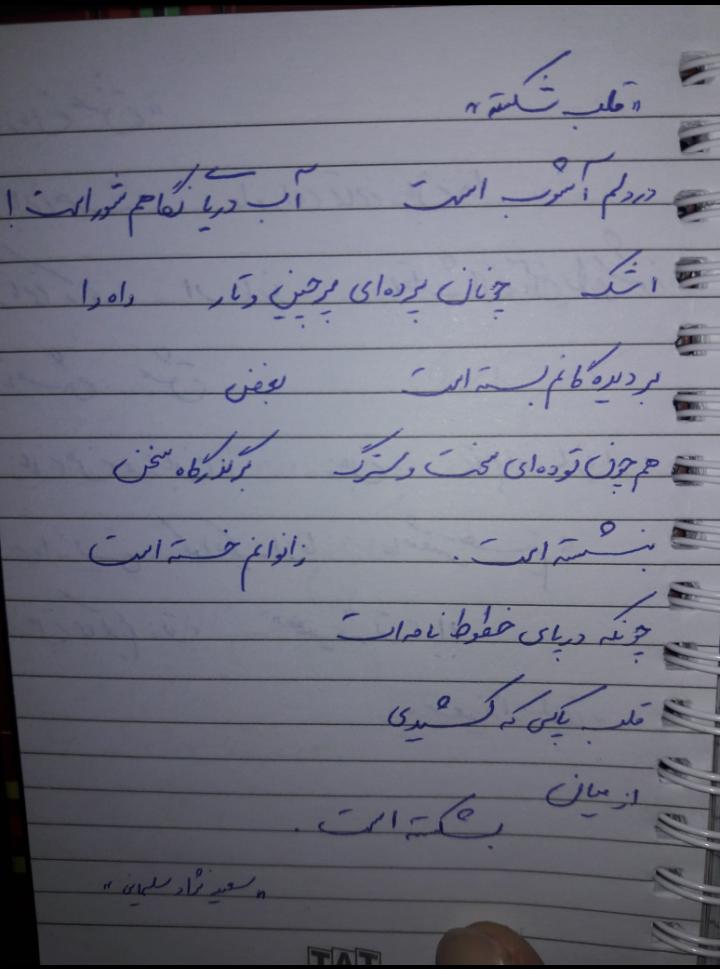 "قلب شکسته"
در دلم آشوب است آب دریای نگاهم شور است!
اشک چونان پرده‌ای پرچین و تار راه را
بر دیدگانم بسته است بغض
هم چون توده‌ای سخت و سترگ بر گذرگاه سخن
بنشسته است. زانوانم خسته است
چونکه در پای خطوط نامه‌ات
قلب پاکی که کشیدی
از میان
بشکسته است.
"سعید نژاد سلیمانی"
TAT